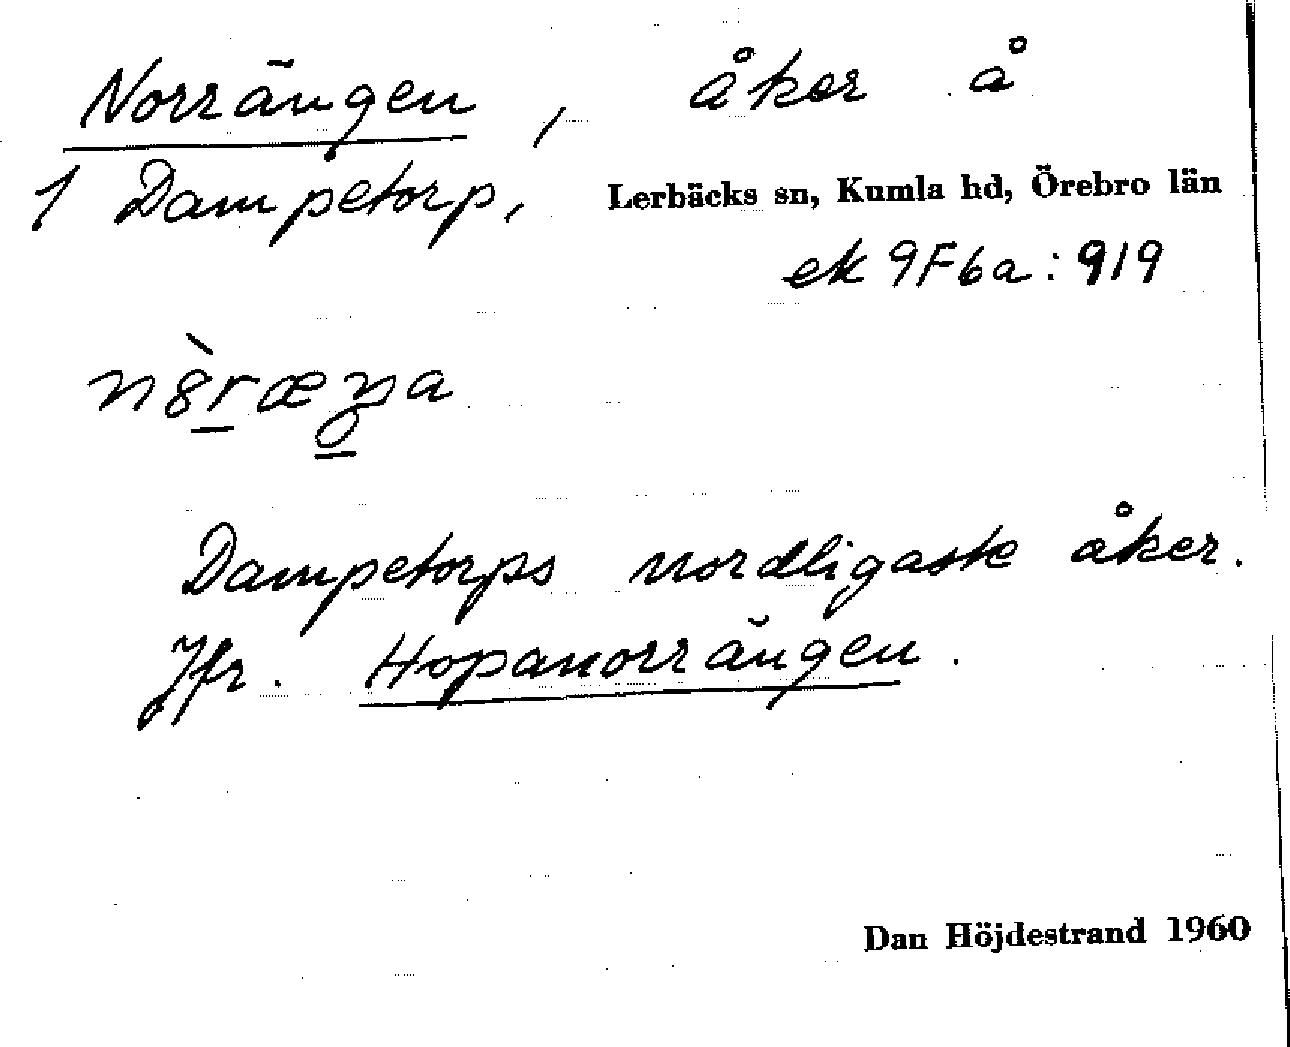 Norrängen, åker å
1 Dampetorp, Lerbäcks sn, Kumla hd, Örebro län
ek 9F6a:919
Dampetorps nordligaste åker.
Jfr. Hopanorrängen.
Dan Höjdestrand 1960